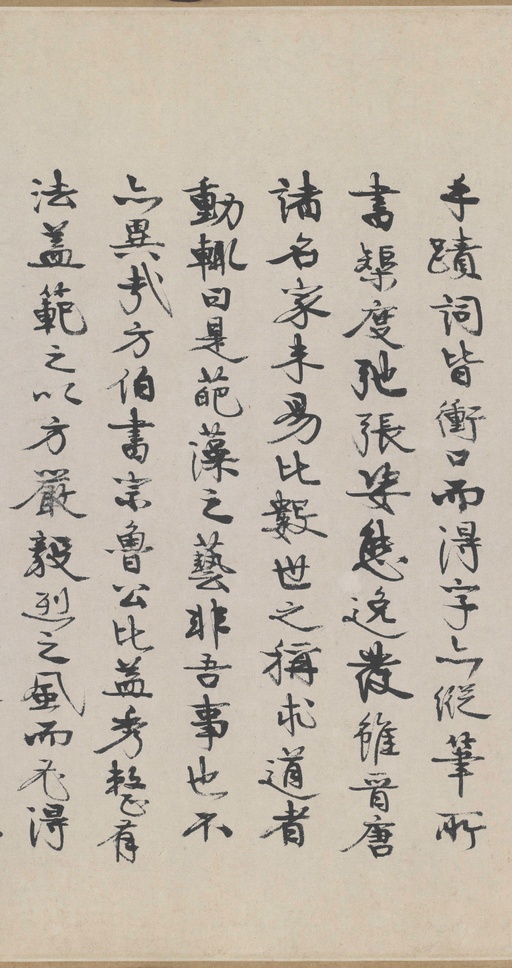 手蹟詞皆衝口而得字亦縱筆所
書榘度弛張姿態逸發雖晉唐
諸名家未易比數世之稱求道者
動輒曰是葩藻之藝非吾事也不
亦異哉方伯書宗魯公比益秀整有
法蓋範之以方嚴毅烈之風而后得